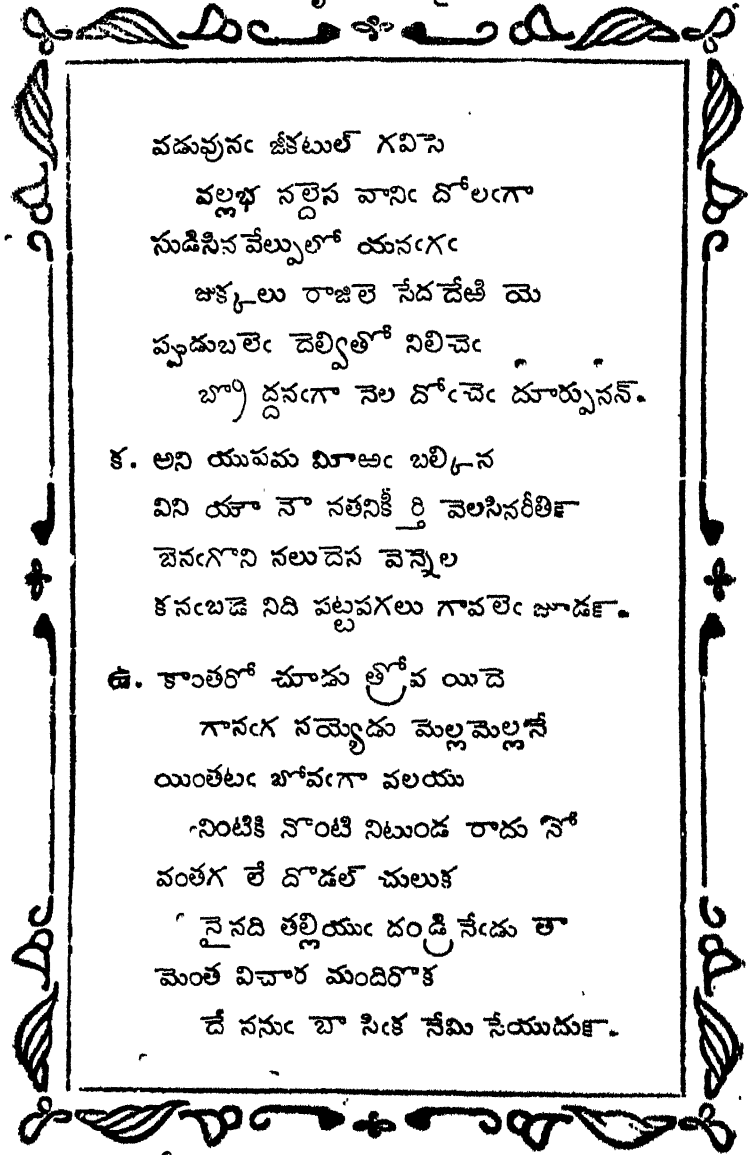 వడువునఁ జీకటుల్ గవిసె
వల్లభ నల్దెస వానిఁ దోలఁగా
సుడిసిన వేల్పులో యనఁగఁ
జుక్కలు రాజిలె సేద దేఱి యె
ప్పుడుబలెఁ దెల్వితో నిలిచెఁ
బ్రొద్దనఁగా నెల దోఁచెఁ దూర్పునన్.
క. అని యుపమ మీఱఁ బల్కిన
విని యా నా నతనికీర్తి వెలసినరీతిన్
బెనఁగొని నలుదెస వెన్నెల
కనఁబడె నిది పట్టపగలు గావలెఁ జూడన్.
ఉ. కాంతరో చూడు త్రోవ యిదె
గానఁగ నయ్యెడు మెల్లమెల్లనే
యింతటఁ బోవఁగా వలయు
నింటికి నొంటి నిటుండ రాదు నో
వంతగ లే దొడల్ చులుక
నైనది తల్లియుఁ దండ్రి నేఁడు తా
మెంత విచార మందిరొక
దే ననుఁ బా సిఁక నేమి సేయుదున్.